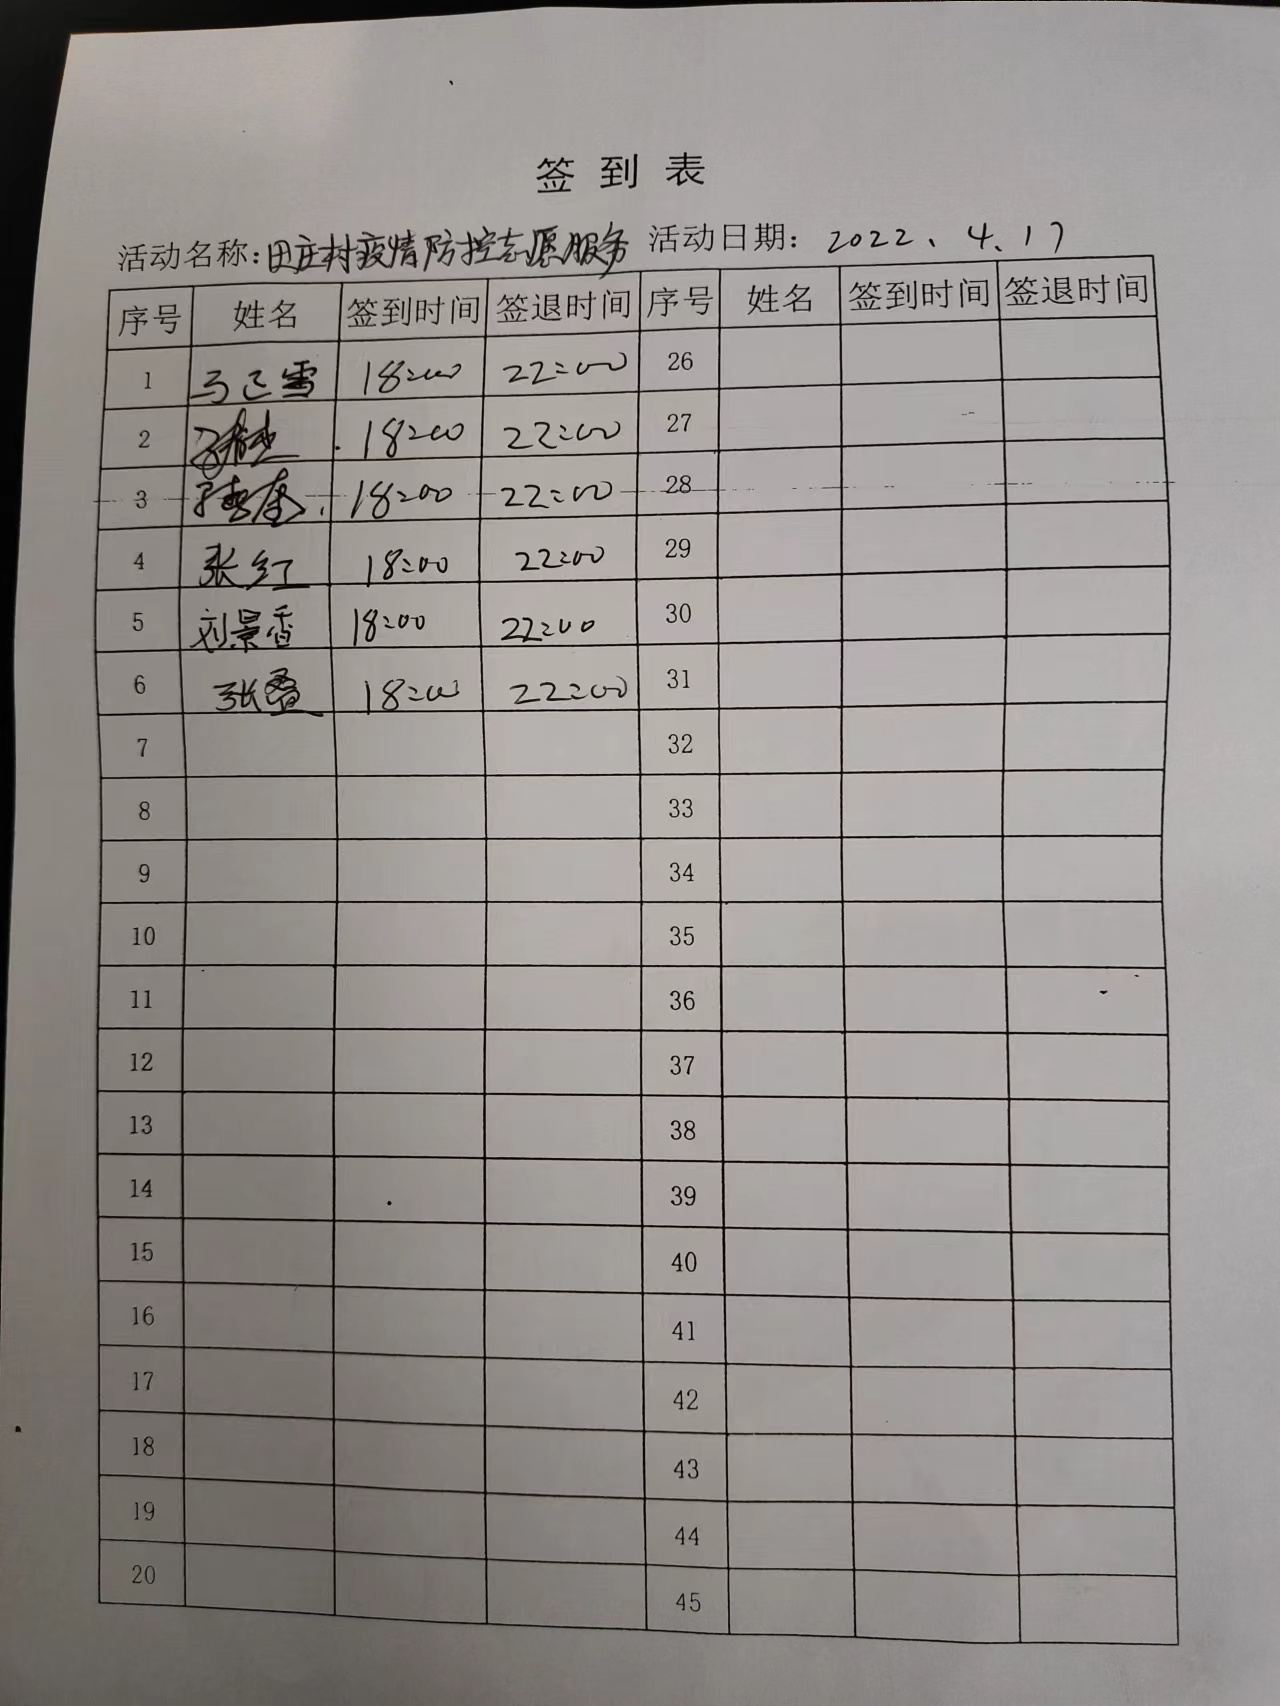 签到表
活动名称:田庄村疫情防控志愿服务 活动日期: 2022.4.17
序号 姓名 签到时间 签退时间 序号 姓名 签到时间 签退时间
1 马己雪 18:00 22:00 26
2 18:00 22:00 27
3 18:00 22:00 28
4 张红 18:00 22:00 29
5 刘景香 18:00 22:00 30
6 张叠 18:00 22:00 31
7 32
8 33
9 34
10 35
11 36
12 37
13 38
14 39
15 40
16 41
17 42
18 43
19 44
20 45